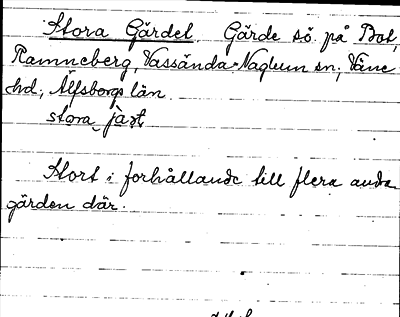 Stora Gärdet. Gärde sö. på Bot,
Ramneberg, Vassända-Naglum sn, Väne
hd, Älfsborgs län.
stora jàʃt
Stort i förhållande till flera andra
gärden där.